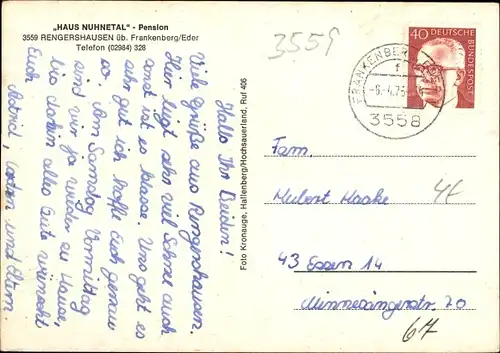 „HAUS NUHNETAL“ - Pension
3559 RENGERSHAUSEN üb. Frankenberg/Eder
Telefon (02984) 328
3559
Hallo Ihr Beiden!
Viele Grüße aus Rengershausen.
Hier liegt sehr viel Schnee auch
sonst ist es klasse. Uns geht es
sehr gut ich hoffe Euch genau
so. Am Samstag Vormittag
sind wir ja wieder zu Hause,
bis dahin alles Gute wünscht
Euch
Astrid, und Eltern.
Foto Kronauge, Hallenberg/Hochsauerland, Ruf 406
FRANKENBERG
f
-6.-4.73
3558
40 DEUTSCHE
BUNDESPOST
Fam.
Hubert Haake
43 Essen 14
Minnesängerstr. 20
67